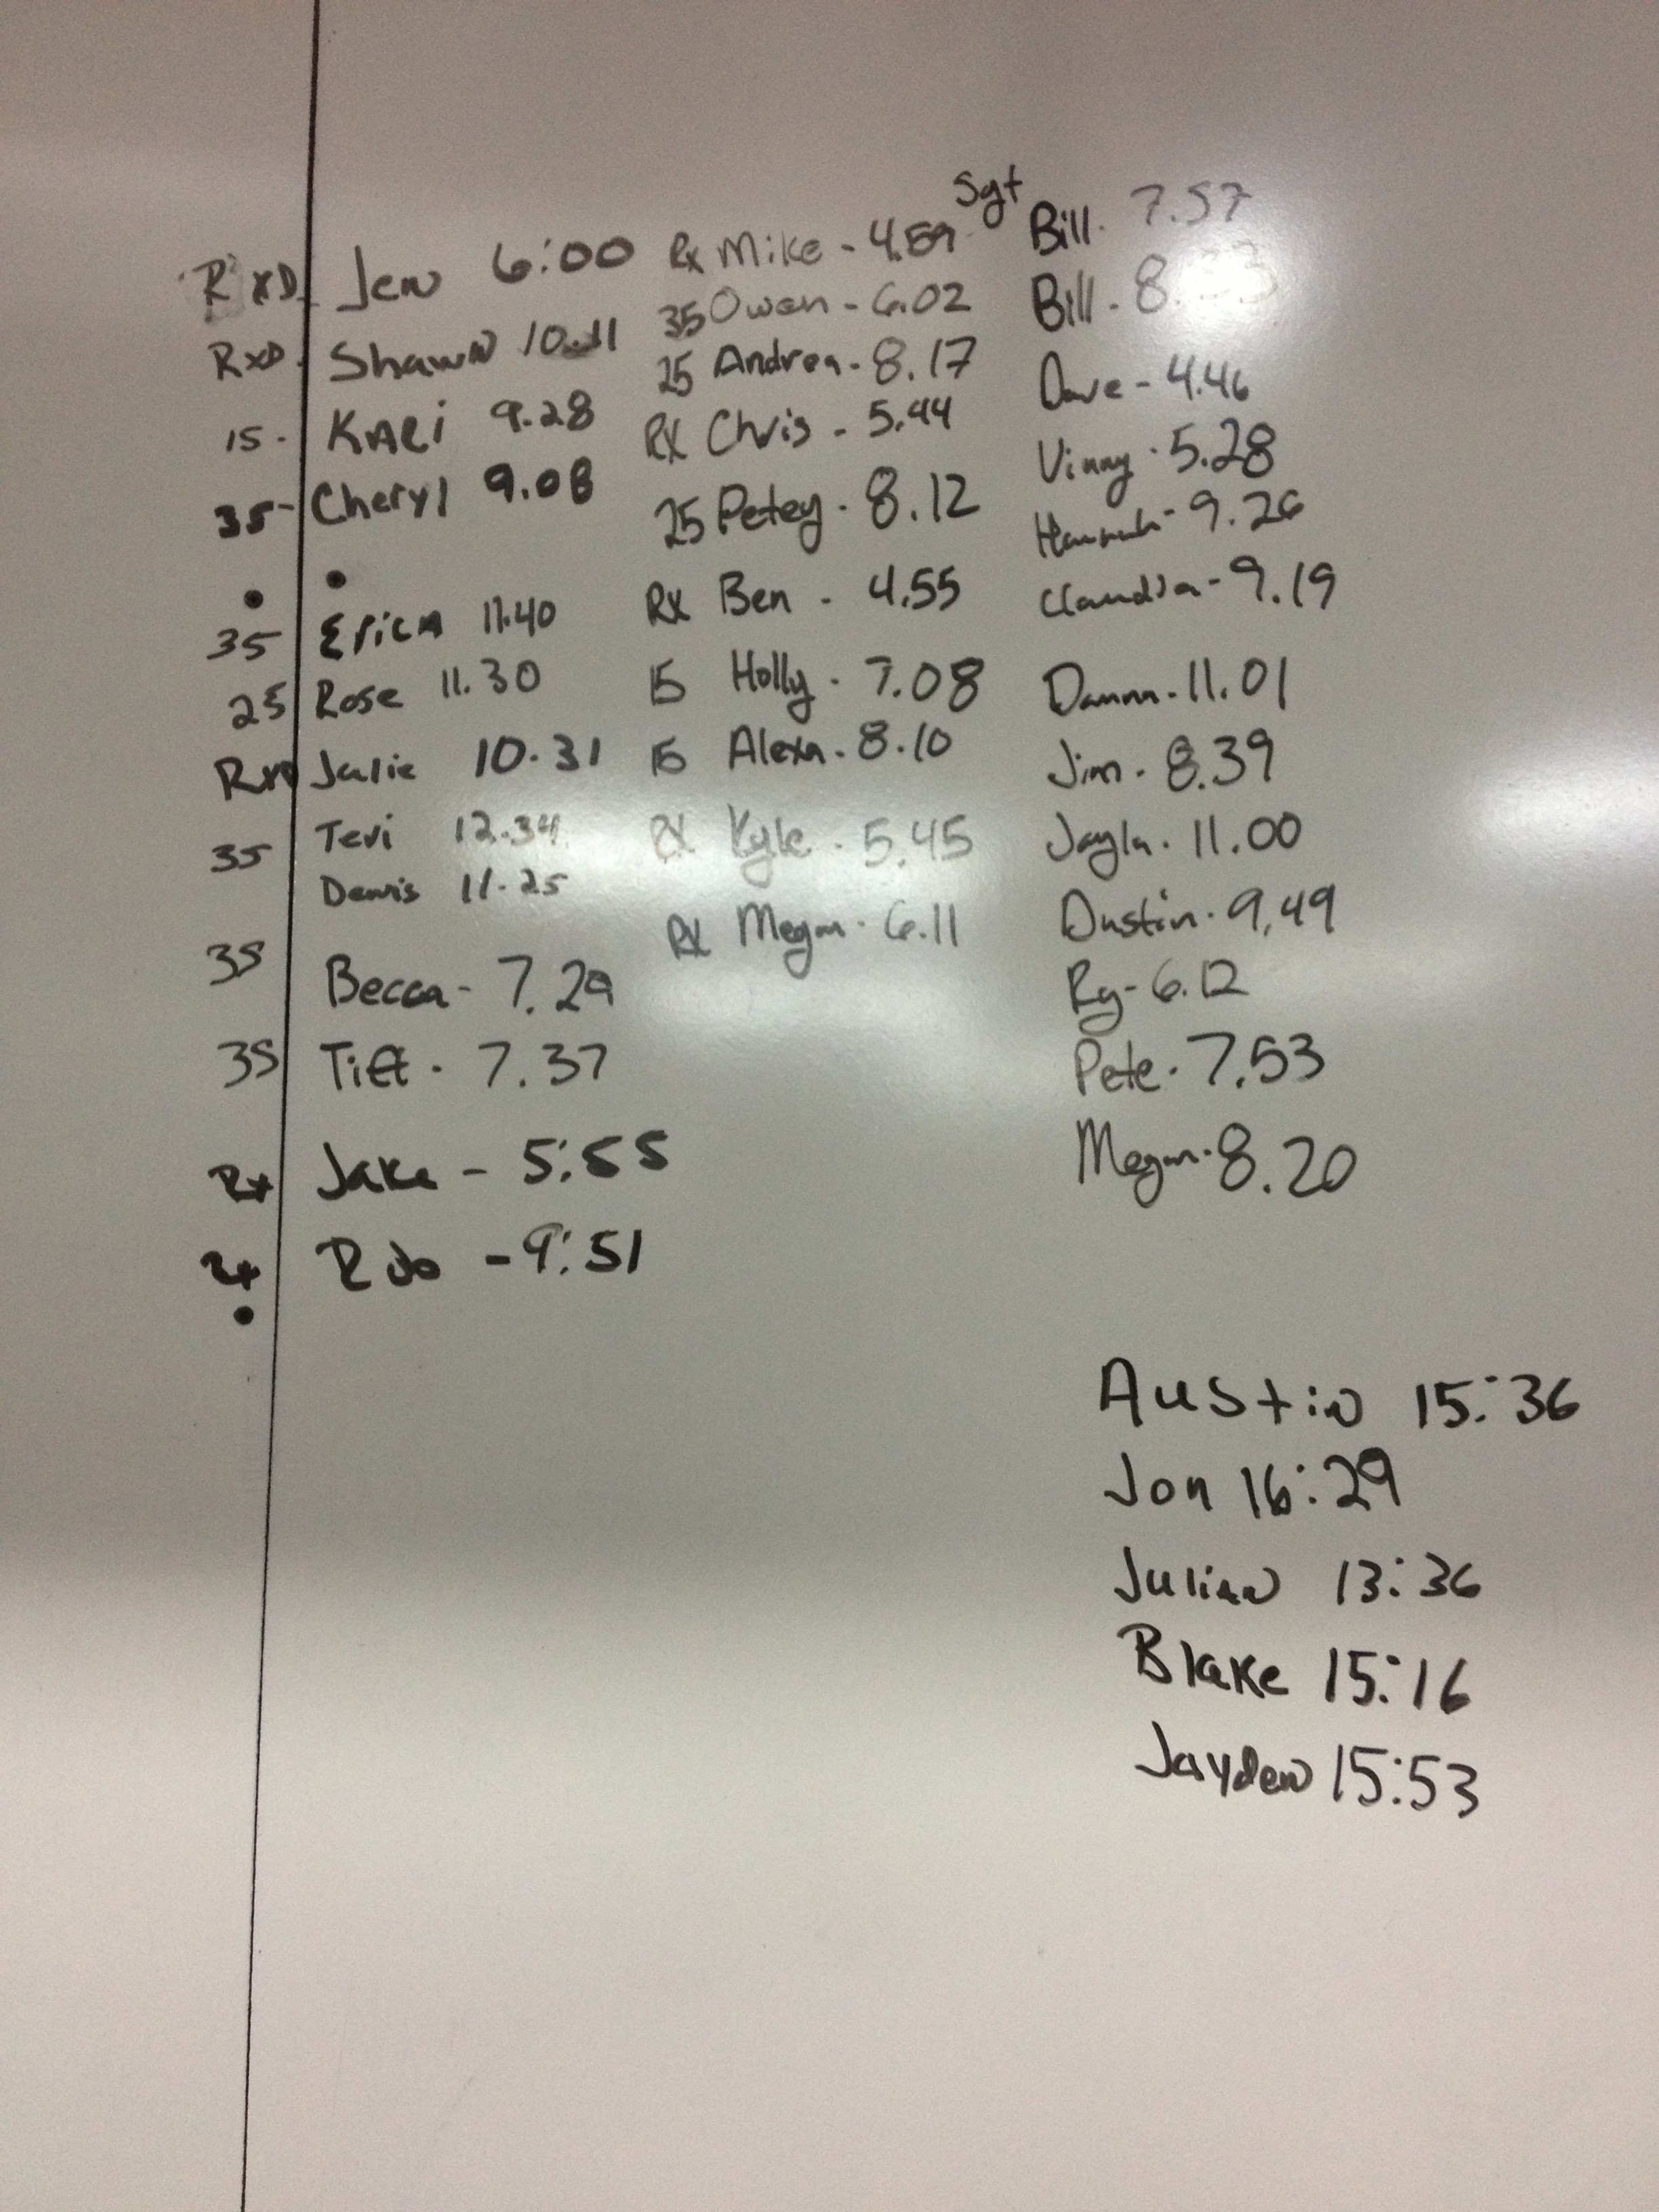 RxD Jen 6:00
RxD. Shawn 10.11
15 - KARi 9.28
35 - Cheryl 9.08
35 Erica 11.40
25 Rose 11.30
RxD Julie 10.31
35 Teri 12.34
Dennis 11.25
35 Becca - 7.29
35 Tiff - 7.37
Rx Jake - 5:55
Rx Rob - 9:51
Rx Mike - 4.59
35 Owen - 6.02
25 Andrea - 8.17
RX Chris - 5.44
25 Petey - 8.12
RX Ben - 4.55
15 Holly - 7.08
15 Alexa - 8.10
RX Kyle - 5.45
RX Megan - 6.11
Sgt Bill - 7.57
Bill - 8.
Dave - 4.46
Vinny - 5.28
Hannah - 9.26
Claudia - 9.19
11.01
Jim - 8.39
Jayla - 11.00
Dustin - 9.49
Ry - 6.12
Pete - 7.53
Megan - 8.20
Austin 15:36
Jon 16:29
Julian 13:36
Blake 15:16
Jayden 15:53